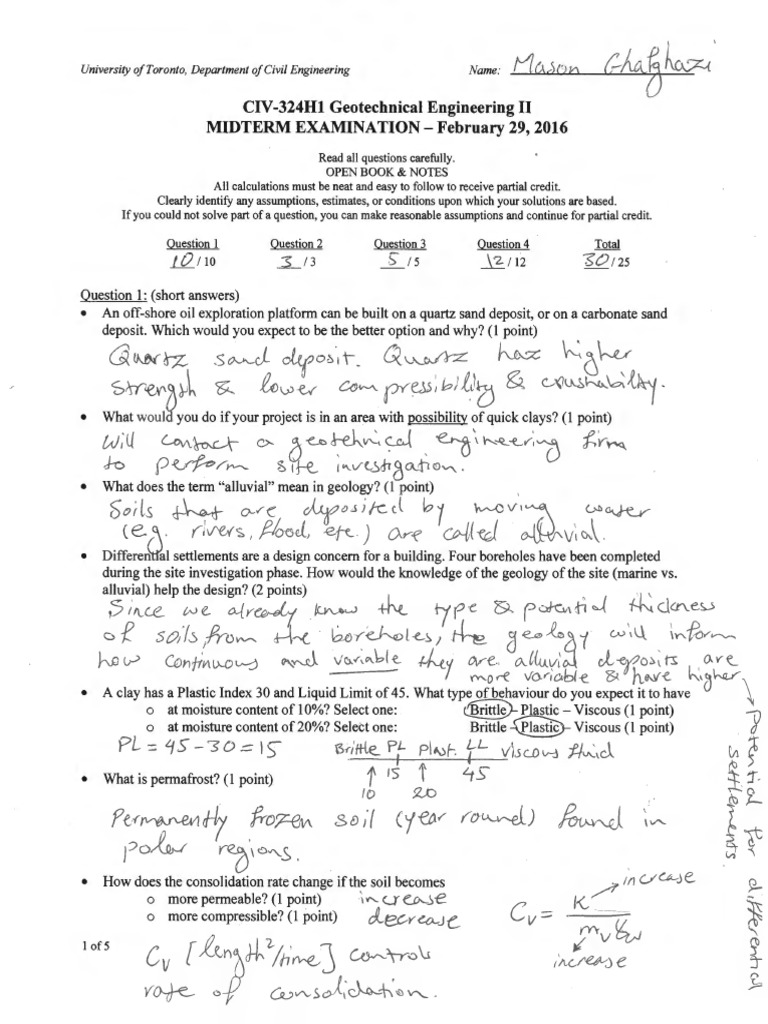 University of Toronto, Department of Civil Engineering Name: Mason Ghafghazi
CIV-324H1 Geotechnical Engineering II
MIDTERM EXAMINATION – February 29, 2016
Read all questions carefully.
OPEN BOOK & NOTES
All calculations must be neat and easy to follow to receive partial credit.
Clearly identify any assumptions, estimates, or conditions upon which your solutions are based.
If you could not solve part of a question, you can make reasonable assumptions and continue for partial credit.
Question 1 Question 2 Question 3 Question 4 Total
10 / 10 3 / 3 5 / 5 12 / 12 30 / 25
Question 1: (short answers)
• An off-shore oil exploration platform can be built on a quartz sand deposit, or on a carbonate sand
deposit. Which would you expect to be the better option and why? (1 point)
Quartz sand deposit. Quartz has higher
strength & lower compressibility & crushability.
• What would you do if your project is in an area with possibility of quick clays? (1 point)
Will contact a geotehnical engineering firm
to perform site investigation.
• What does the term "alluvial" mean in geology? (1 point)
Soils that are deposited by moving water
(e.g. rivers, flood, etc.) are called alluvial.
• Differential settlements are a design concern for a building. Four boreholes have been completed
during the site investigation phase. How would the knowledge of the geology of the site (marine vs.
alluvial) help the design? (2 points)
Since we already know the type & potential thickness
of soils from the boreholes, the geology will inform
how continuous and variable they are. alluvial deposits are
more variable & have higher
→ potential for differential
settlements.
• A clay has a Plastic Index 30 and Liquid Limit of 45. What type of behaviour do you expect it to have
o at moisture content of 10%? Select one: Brittle – Plastic – Viscous (1 point)
o at moisture content of 20%? Select one: Brittle – Plastic – Viscous (1 point)
PL = 45 - 30 = 15 Brittle PL Plast. LL viscous fluid
↑ 15 ↑ 45
10 20
• What is permafrost? (1 point)
Permanently frozen soil (year round) found in
polar regions.
• How does the consolidation rate change if the soil becomes
o more permeable? (1 point) increase
o more compressible? (1 point) decrease
Cv = K / mv γw
increase
increase
1 of 5
Cv [length²/time] controls
rate of consolidation.